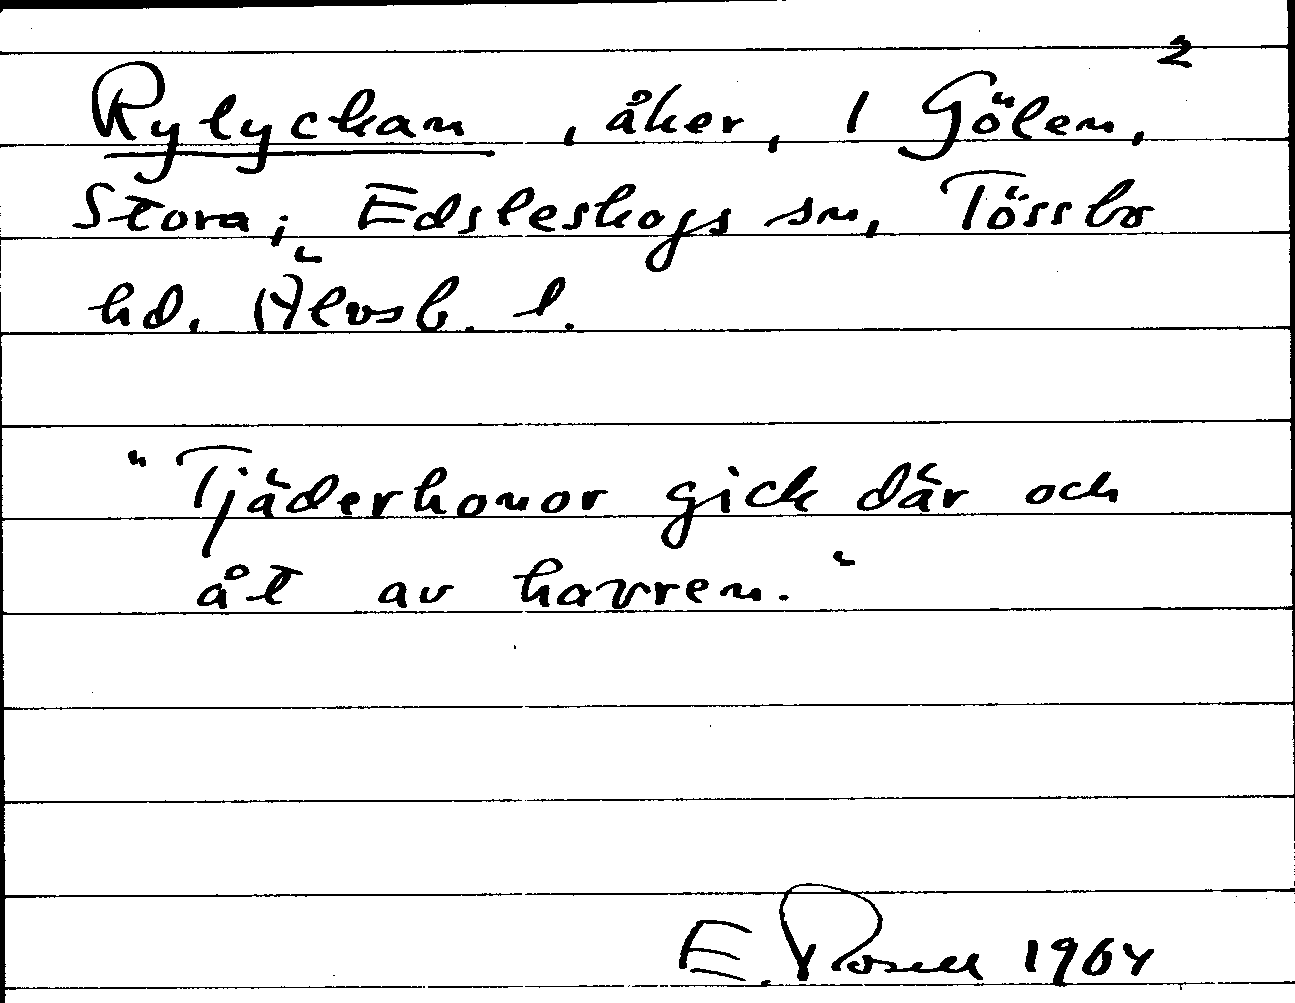 2
Rylyckan, åker, 1 Gölen,
Stora; Edsleskogs sn, Tössbo
hd. Älvsb. l.
"Tjäderhonor gick där och
åt av havren."
E. Rosell 1964